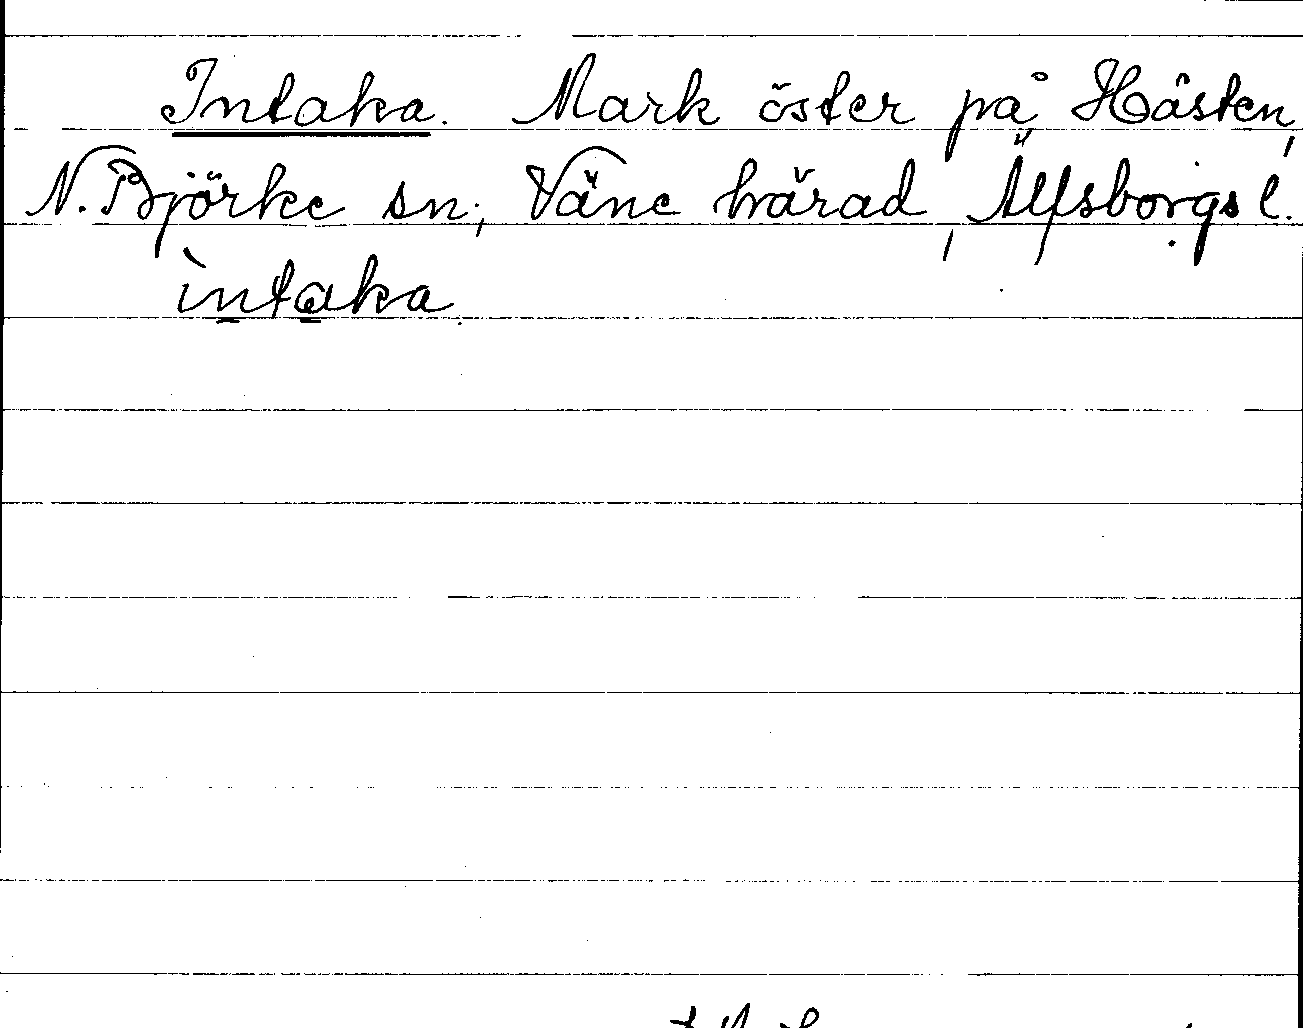 Intaka. Mark öster på Håsten,
N. Björke sn, Väne härad, Älfsborgs l.
ìntaka